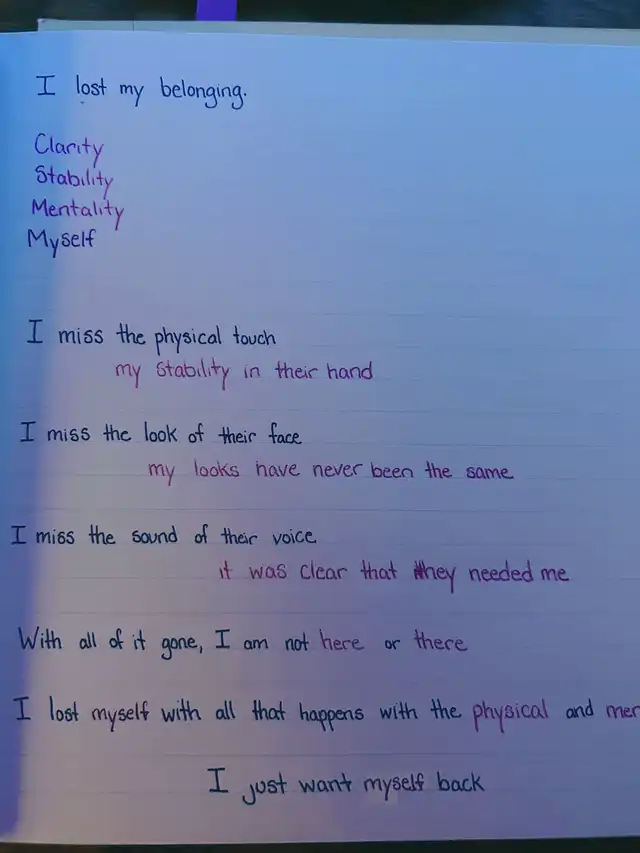 I lost my belonging.
Clarity
Stability
Mentality
Myself
I miss the physical touch
my stability in their hand
I miss the look of their face
my looks have never been the same
I miss the sound of their voice
it was clear that they needed me
With all of it gone, I am not here or there
I lost myself with all that happens with the physical and
I just want myself back